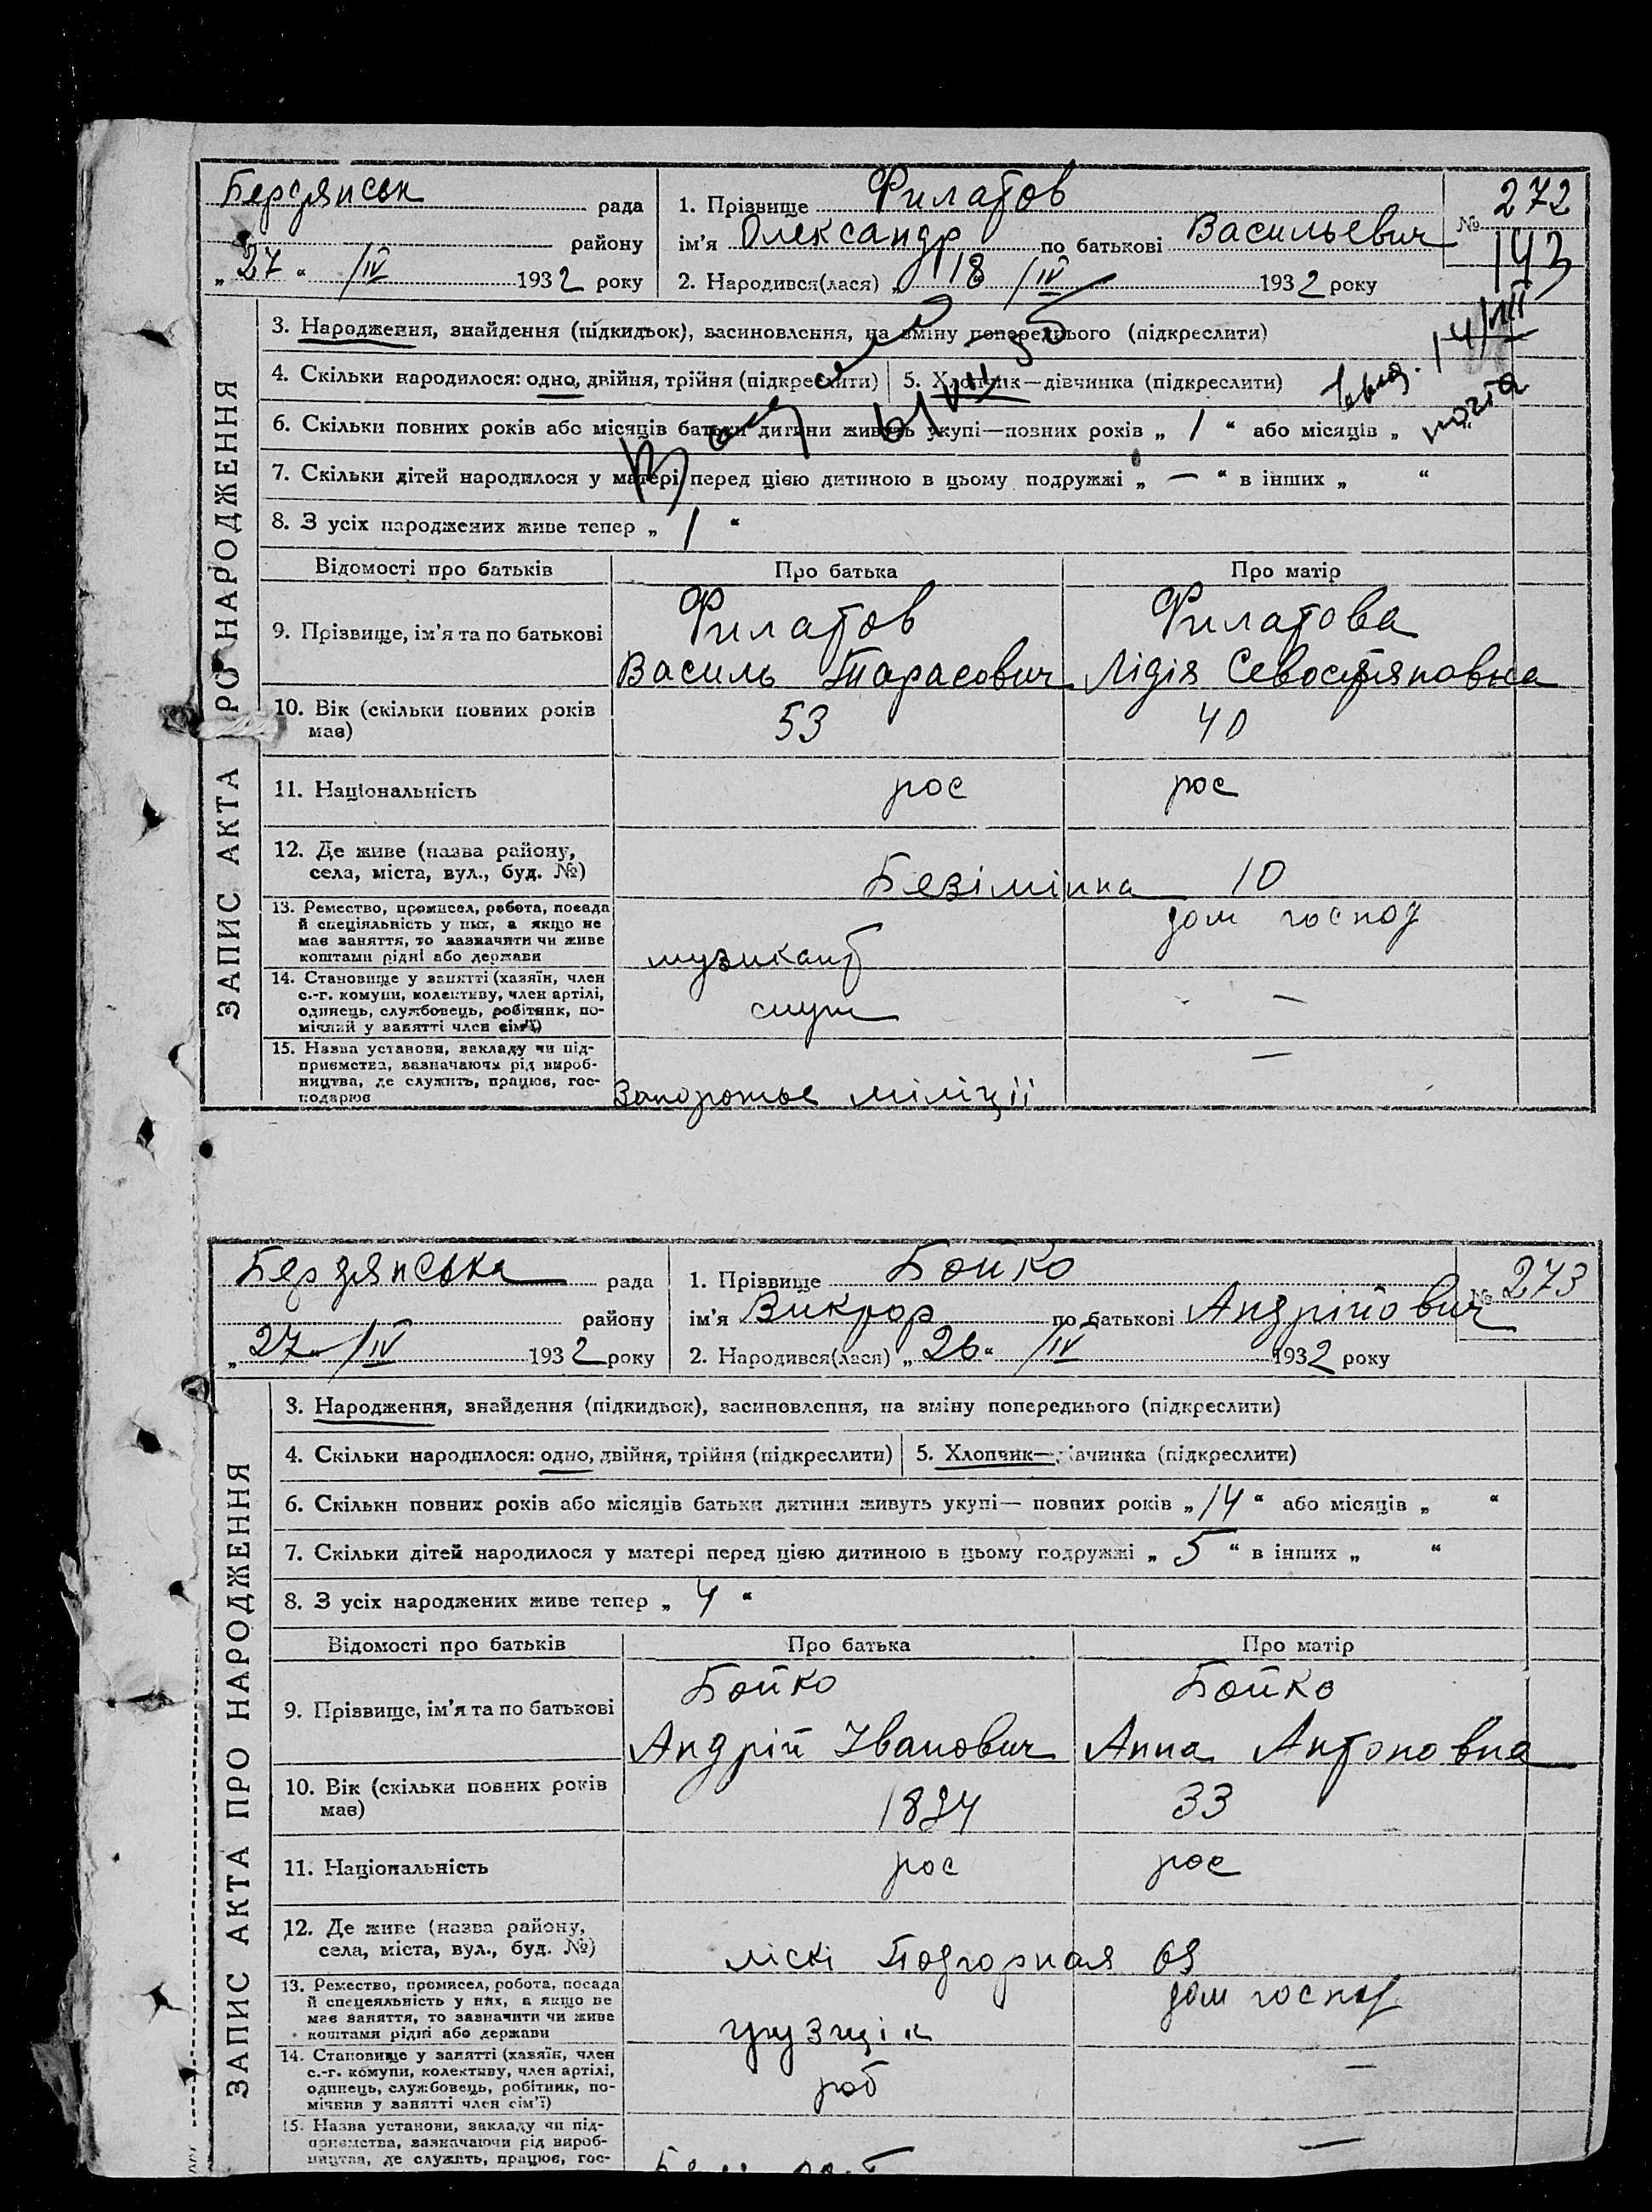 Бердянськ рада
району
„27“ /IV 1932 року
1. Прізвище Филатов
ім'я Олександр по батькові Васильевич
2. Народився(лася) „18 /IV 1932 року
№ 272
143
3. Народження, знайдення (підкидьок), васиновлення, на зміну попереднього (підкреслити)
4. Скільки народилося: одно, двійня, трійня (підкреслити) 5. Хлопчик—дівчинка (підкреслити)
14/VIII
почта
6. Скільки повних років або місяців батьки дитини живуть укупі—повних років „ 1 “ або місяців „ “
7. Скільки дітей народилося у матері перед цією дитиною в цьому подружжі „ — “ в інших „ “
8. З усіх народжених живе тепер „ 1 “
ЗАПИС АКТА ПРО НАРОДЖЕННЯ
Відомості про батьків Про батька Про матір
9. Прізвище, ім'я та по батькові
Филатов Филатова
Василь Тарасович Лідія Севостяновна
10. Вік (скільки повних років має) 53 40
11. Національність рос рос
12. Де живе (назва району,
села, міста, вул., буд. №) Безімінна 10
13. Ремество, промисел, робота, посада
й спеціяльність у них, а якщо не
має заняття, то зазначити чи живе
коштами рідні або держави
музикант дом господ
14. Становище у занятті (хазяїн, член
с.-г. комуни, колективу, член артілі,
одинець, службовець, робітник, по-
мічний у занятті член сім'ї)
служ —
15. Назва установи, закладу чи під-
приємства, зазначаючи рід вироб-
ництва, де служить, працює, гос-
подарює
Запорожье міліції —
Бердянська рада
району
„27“ /IV 1932 року
1. Прізвище Бойко
ім'я Виктор по батькові Андрійович
2. Народився(лася) „26“ /IV 1932 року
№ 273
3. Народження, знайдення (підкидьок), васиновлення, на зміну попереднього (підкреслити)
4. Скільки народилося: одно, двійня, трійня (підкреслити) 5. Хлопчик—дівчинка (підкреслити)
6. Скільки повних років або місяців батьки дитини живуть укупі— повних років „14“ або місяців „ “
7. Скільки дітей народилося у матері перед цією дитиною в цьому подружжі „ 5 “ в інших „ “
8. З усіх народжених живе тепер „ 4 “
ЗАПИС АКТА ПРО НАРОДЖЕННЯ
Відомості про батьків Про батька Про матір
9. Прізвище, ім'я та по батькові
Бойко Бойко
Андрій Іванович Анна Антоновна
10. Вік (скільки повних років
має) 1894 33
11. Національність рос рос
12. Де живе (назва району,
села, міста, вул., буд. №) ліскі Подгорная 69
13. Ремество, промисел, робота, посада
й спецеяльність у них, а якщо не
має заняття, то зазначити чи живе
коштами рідні або держави
грузщік дом господ
14. Становище у занятті (хазяїн, член
с.-г. комуни, колективу, член артілі,
одинець, службовець, робітник, по-
мічник у занятті член сім'ї)
роб —
15. Назва установи, закладу чи під-
приємства, зазначаючи рід вироб-
ництва, де служить, працює, гос-
—